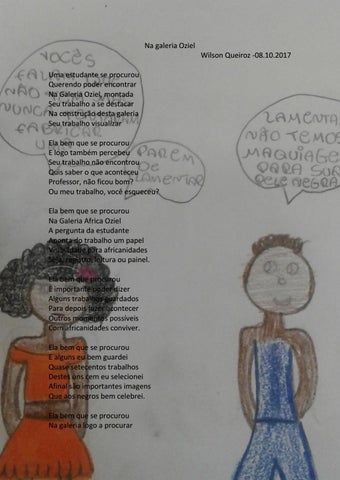 Na galeria Oziel
Wilson Queiroz -08.10.2017
VOCÊS
FALAM
NÃO
NUNCA
FABRICAR
PAREM
DE
LAMENTAR
LAMENTA
NÃO TEMOS
MAQUIAGE
PARA SUA
PELE NEGRA
Uma estudante se procurou
Querendo poder encontrar
Na Galeria Oziel, montada
Seu trabalho a se destacar
Na construção desta galeria
Seu trabalho visualizar
Ela bem que se procurou
E logo também percebeu
Seu trabalho não encontrou
Quis saber o que aconteceu
Professor, não ficou bom?
Ou meu trabalho, você esqueceu?
Ela bem que se procurou
Na Galeria Africa Oziel
A pergunta da estudante
Aponta do trabalho um papel
Visibilidade para africanidades
Seja, registro, leitura ou painel.
Ela bem que procurou
É importante poder dizer
Alguns trabalhos guardados
Para depois fazer acontecer
Outros momentos possíveis
Com africanidades conviver.
Ela bem que se procurou
E alguns eu bem guardei
Quase setecentos trabalhos
Destes uns cem eu selecionei
Afinal são importantes imagens
Que aos negros bem celebrei.
Ela bem que se procurou
Na galeria logo a procurar